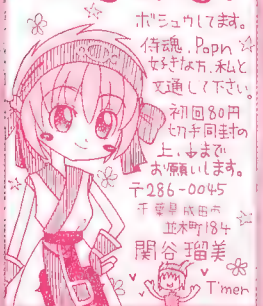 ボシュウしてます。
侍魂、Popn
好きな方、私と
文通して下さい。
初回80円
切手同封の
上、↓まで
お願いします。
〒286-0045
千葉県成田市
並木町184
関谷瑠美
T'men